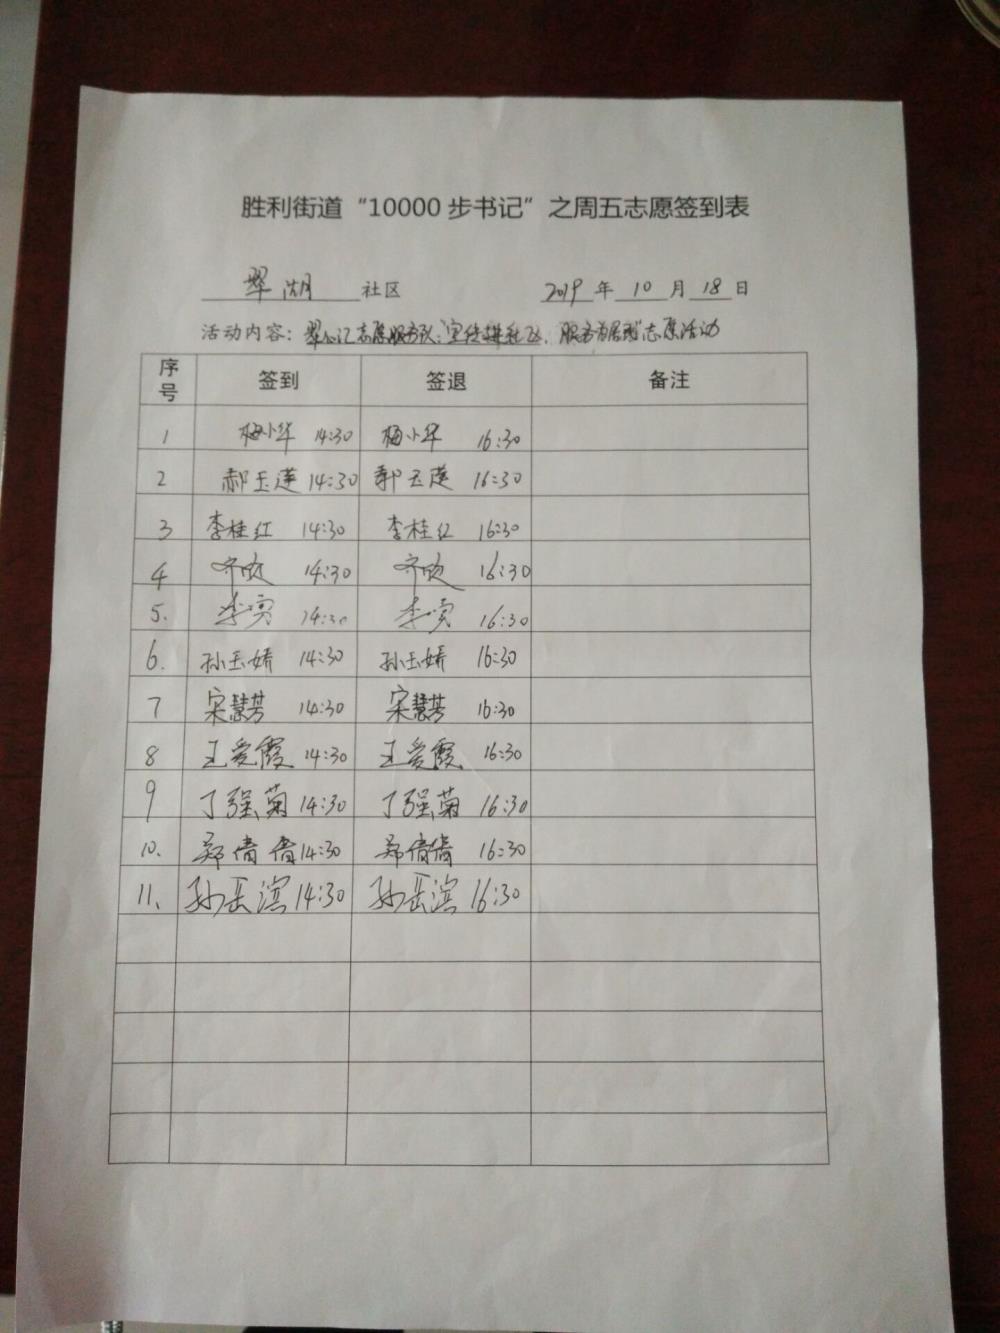 胜利街道“10000步书记”之周五志愿签到表
翠湖 社区 2019 年 10 月 18 日
活动内容：翠心汇志愿服务队:宣传进社区，服务为居民志愿活动
序号 签到 签退 备注
1 梅小华 14:30 梅小华 16:30
2 郝玉莲 14:30 郝玉莲 16:30
3 李桂红 14:30 李桂红 16:30
4 齐欣 14:30 齐欣 16:30
5. 李 14:30 李 16:30
6. 孙玉娇 14:30 孙玉娇 16:30
7 宋慧芳 14:30 宋慧芳 16:30
8 王爱霞 14:30 王爱霞 16:30
9 丁强菊 14:30 丁强菊 16:30
10. 郑倩倩 14:30 郑倩倩 16:30
11、 孙岳滨 14:30 孙岳滨 16:30